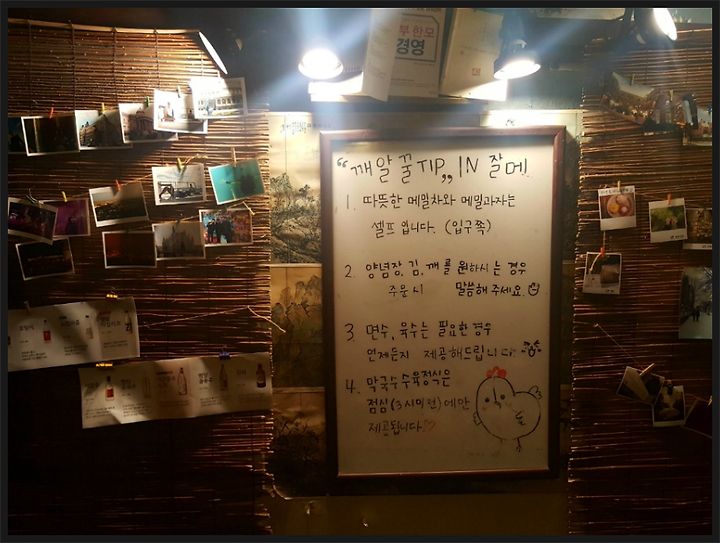 부한모
경영
"깨알 꿀TIP„ IN 잘메
1. 따뜻한 메밀차와 메밀과자는
셀프 입니다. (입구쪽)
2. 양념장, 김, 깨를 원하시는 경우
주문시 말씀해 주세요.
3. 면수, 육수는 필요한 경우
언제든지 제공해드립니다.
4. 막국수수육정식은
점심(3시이전)에만
제공됩니다♡